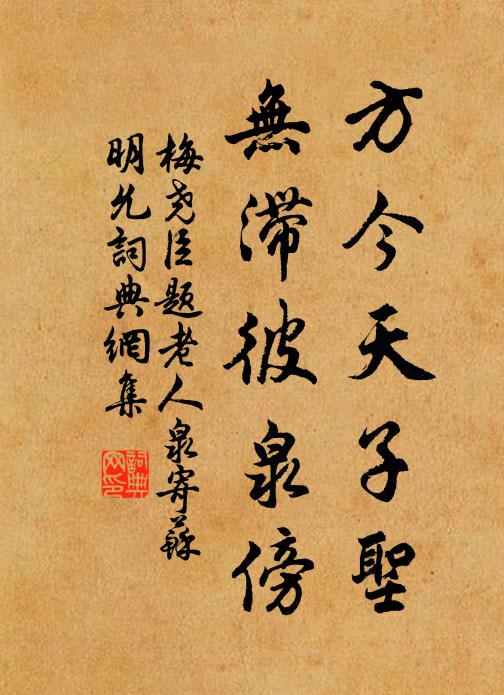 方今天子聖
無滯彼泉傍
梅尧臣題老人泉寄蘇
明允詞典網集
詞典
网印